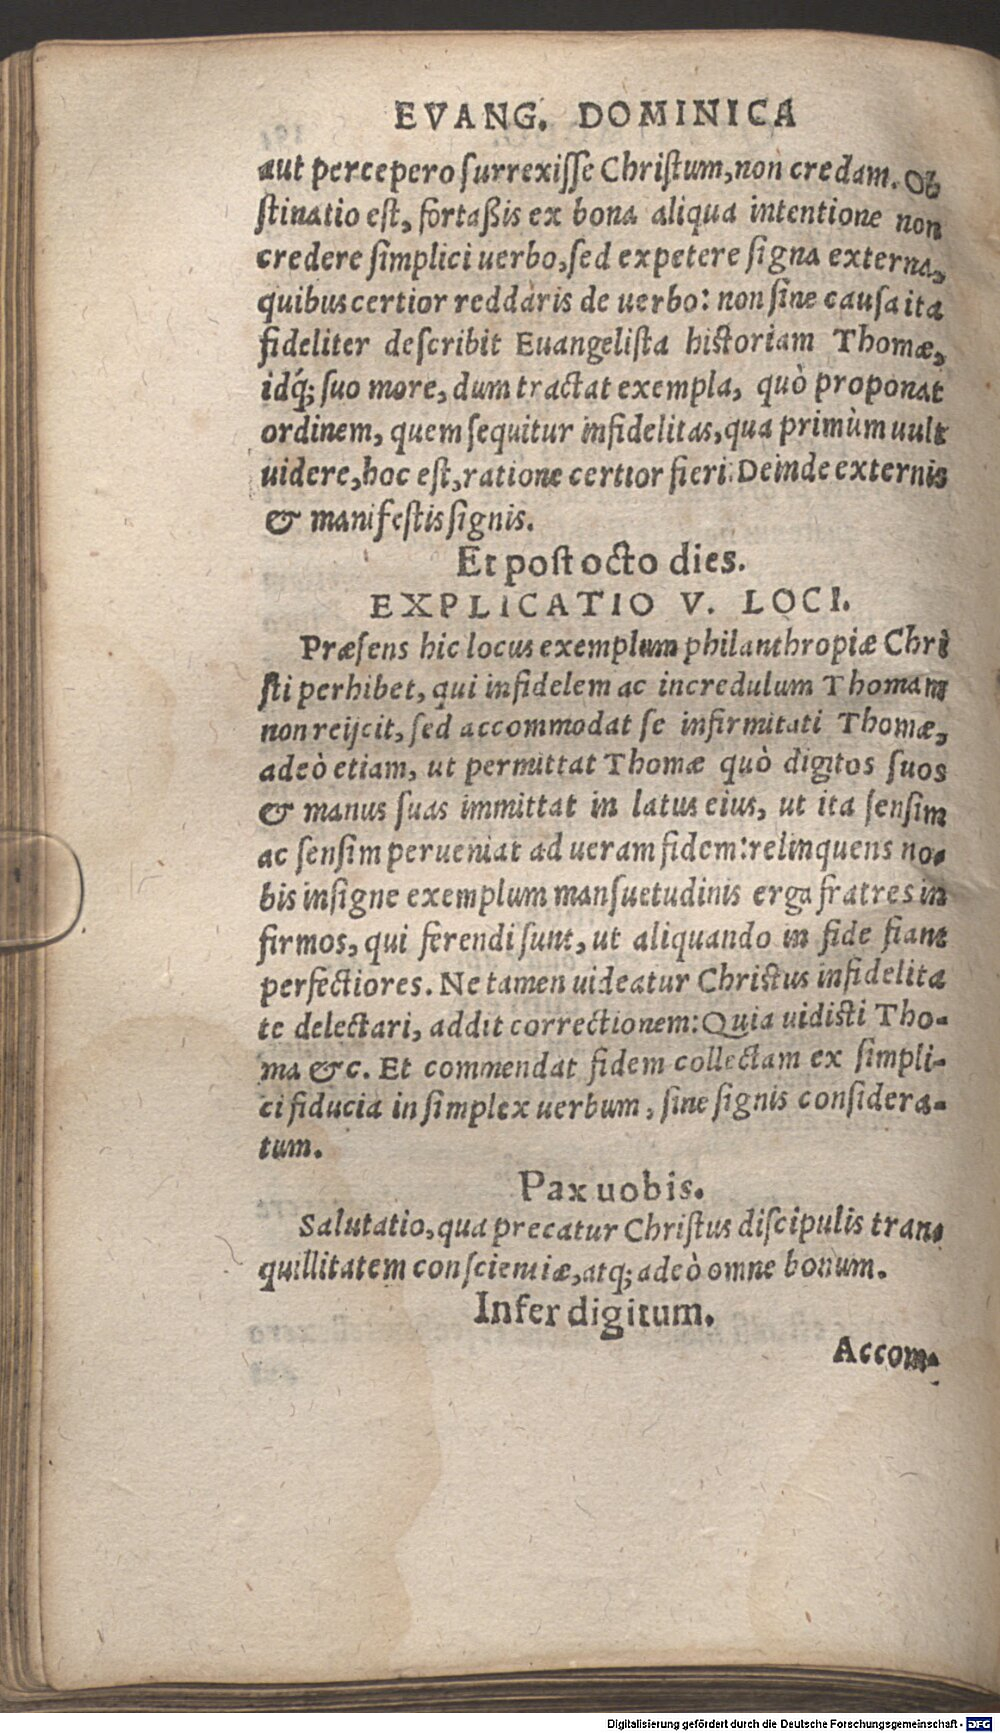 EVANG. DOMINICA
aut percepero ſurrexiſſe Chriſtum, non credam. Ob
ſtinatio eſt, fortaßis ex bona aliqua intentione non
credere ſimplici uerbo, ſed expetere ſigna externa,
quibus certior reddaris de uerbo: non ſine cauſa ita
fideliter deſcribit Euangeliſta hiſtoriam Thomæ,
idq́; ſuo more, dum tractat exempla, quò proponat
ordinem, quem ſequitur infidelitas, qua primùm uult
uidere, hoc eſt, ratione certior fieri. Deinde externis
& manifeſtis ſignis.
Et poſt octo dies.
EXPLICATIO V. LOCI.
Præſens hic locus exemplum philanthropiæ Chri
ſti perhibet, qui infidelem ac incredulum Thomam
non reijcit, ſed accommodat ſe infirmitati Thomæ,
adeò etiam, ut permittat Thomæ quò digitos ſuos
& manus ſuas immittat in latus eius, ut ita ſenſim
ac ſenſim perueniat ad ueram fidem: relinquens no-
bis inſigne exemplum manſuetudinis erga fratres in
firmos, qui ferendi ſunt, ut aliquando in fide fiant
perfectiores. Ne tamen uideatur Chriſtus infidelita
te delectari, addit correctionem: Quia uidiſti Tho-
ma &c. Et commendat fidem collectam ex ſimpli-
ci fiducia in ſimplex uerbum, ſine ſignis conſidera-
tum.
Pax uobis.
Salutatio, qua precatur Chriſtus diſcipulis tran-
quillitatem conſcientiæ, atq; adeò omne bonum.
Infer digitum.
Accom-
Digitalisierung gefördert durch die Deutsche Forschungsgemeinschaft - DFG